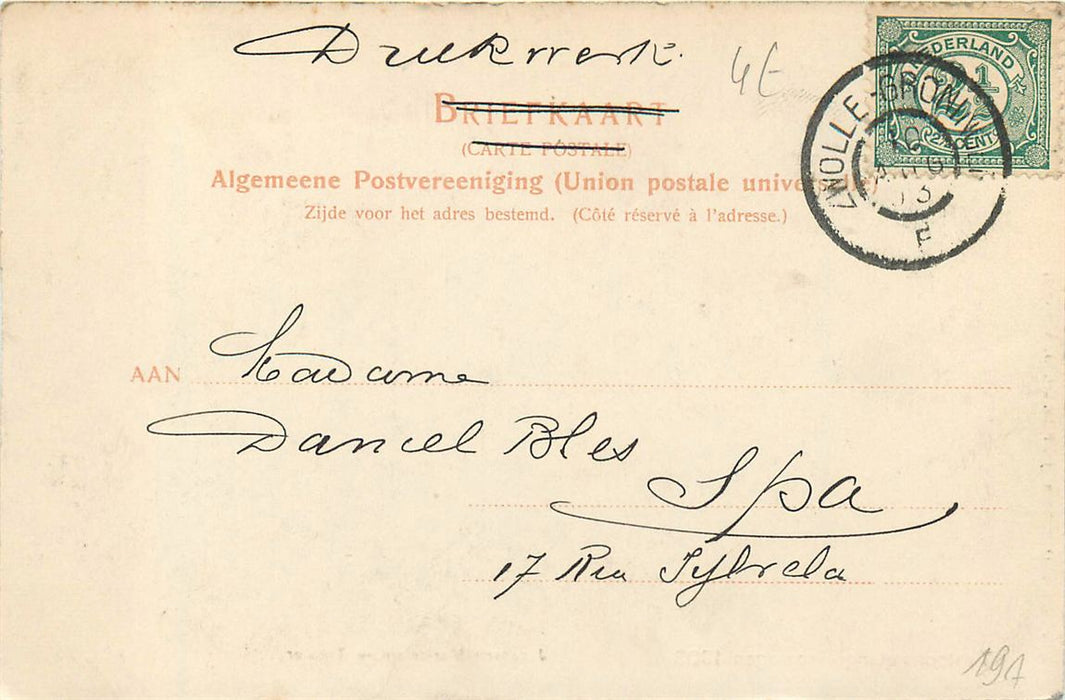 Drukwerk.
4E
BRIEFKAART
(CARTE POSTALE)
Algemeene Postvereeniging (Union postale universelle)
Zijde voor het adres bestemd. (Côté réservé à l'adresse.)
NEDERLAND
2 1/2
(2½ CENT)
ZWOLLE-GRONIN
10
F
AAN Madame
Daniel Bles
Spa
17 Rue
191